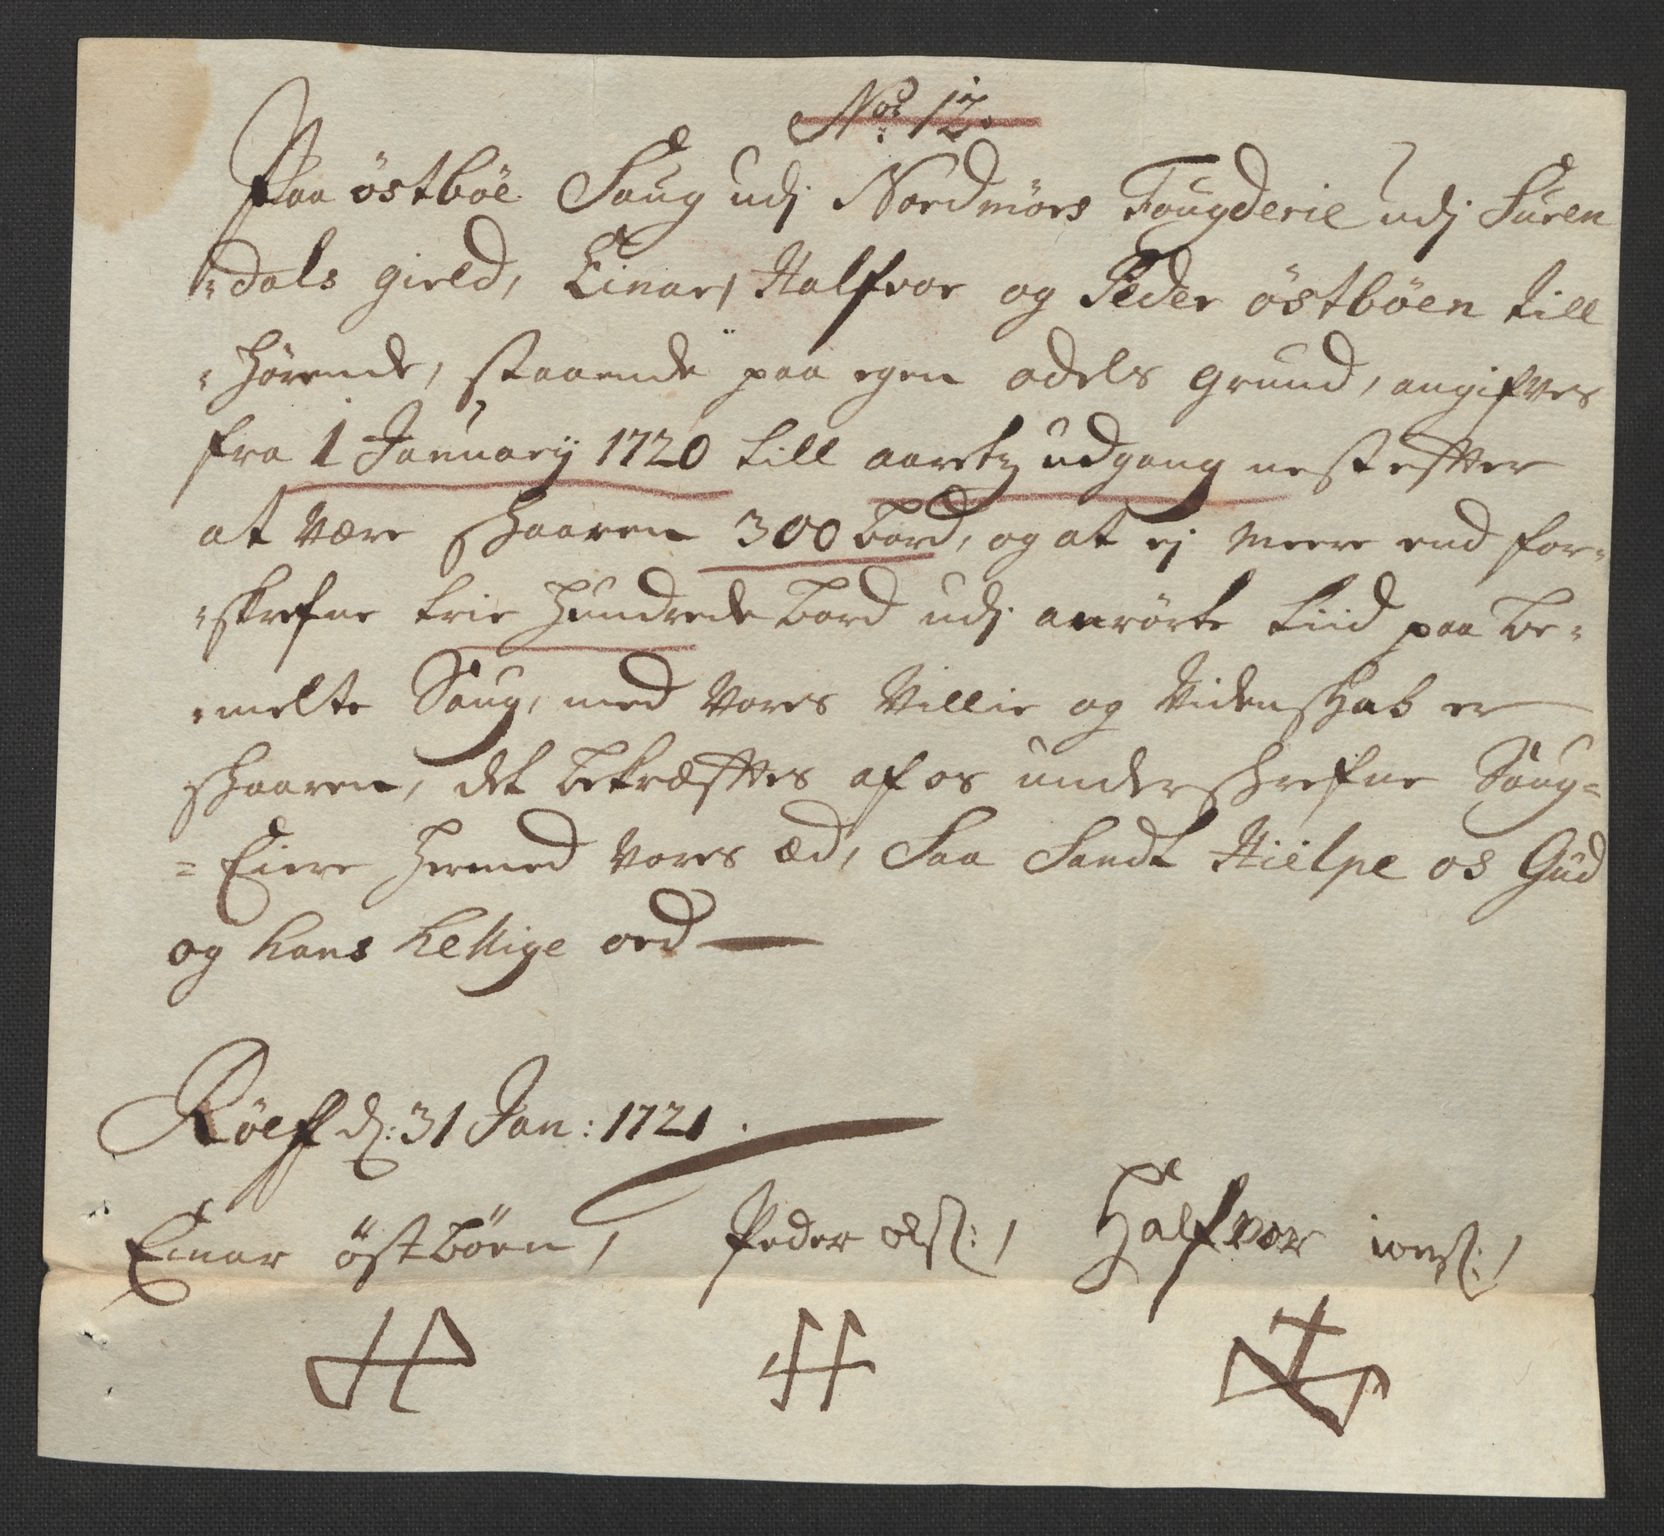 No: 12.
Paa östböe Saug udj Nordmörs Fougderie udj Suren
-dals gield, Einar, Halfvor og Peder östböen till
-hörende, staaende paa egen odels grund, angifves
fra 1 January 1720 till aaretz udgang nest efter
at være skaaren 300 bord, og at ej meere end for-
-skrefne trie hundrede bord udj anrörte tiid paa be-
-melte Saug, med Vores Villie og Videnskab er
skaaren, det bekræfftes af os underskrefne Saug-
-Eiere hermed Vores æd, Saa Sandt Hielpe os Gud
og hans hellige ord
Röeff d: 31 Jan: 1721.
Einar östböen, Peder ols:, Halfvor